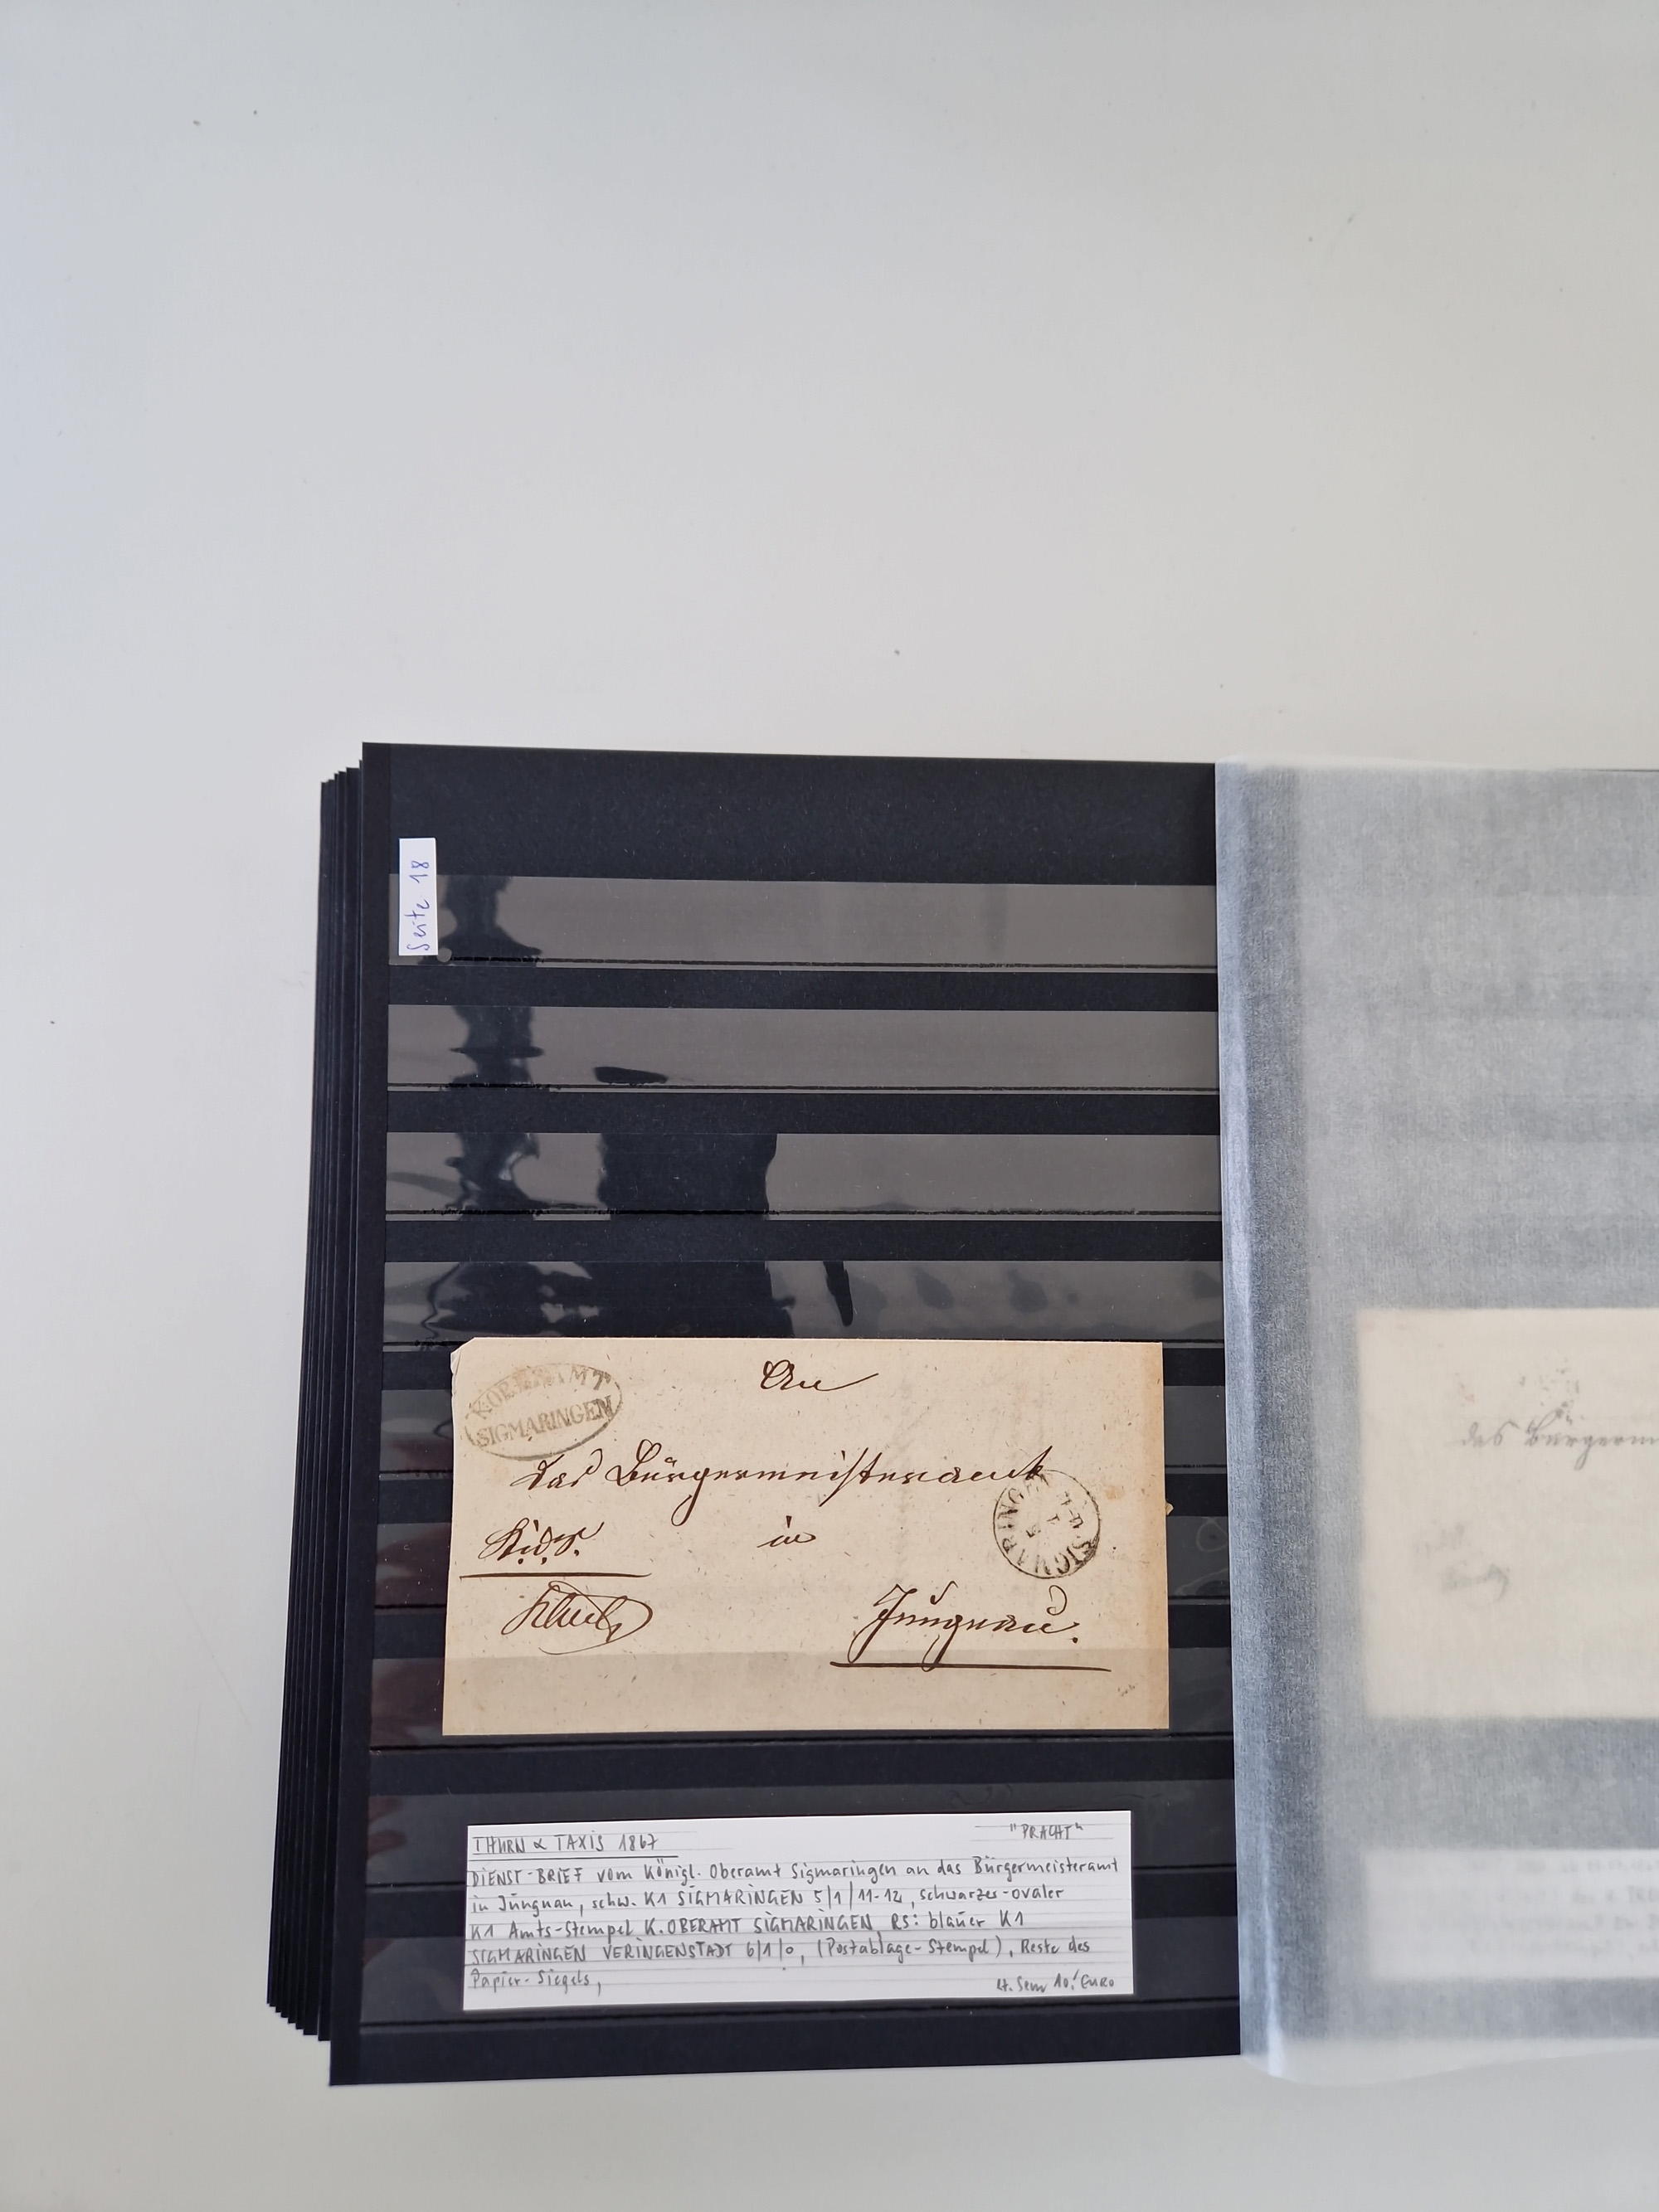 Seite 18
K. OBERAMT
SIGMARINGEN
An
das Bürgermeisteramt
SIGMARINGEN
in
K.d.S.
Jungnau.
das Bürgerm
THURN & TAXIS 1867 "PRACHT"
DIENST-BRIEF vom Königl. Oberamt Sigmaringen an das Bürgermeisteramt
in Jungnau, schw. K1 SIGMARINGEN 5/1/11-12, schwarzer-ovaler
K1 Amts-Stempel K. OBERAMT SIGMARINGEN, RS: blauer K1
SIGMARINGEN VERINGENSTADT 6/1/0, (Postablage-Stempel), Reste des
Papier-Siegels,
lt. Sem 10.- EURO